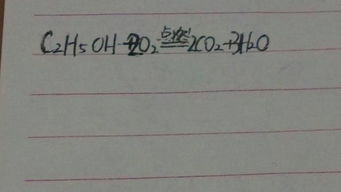 C₂H₅OH+3O₂ 点燃 2CO₂+3H₂O